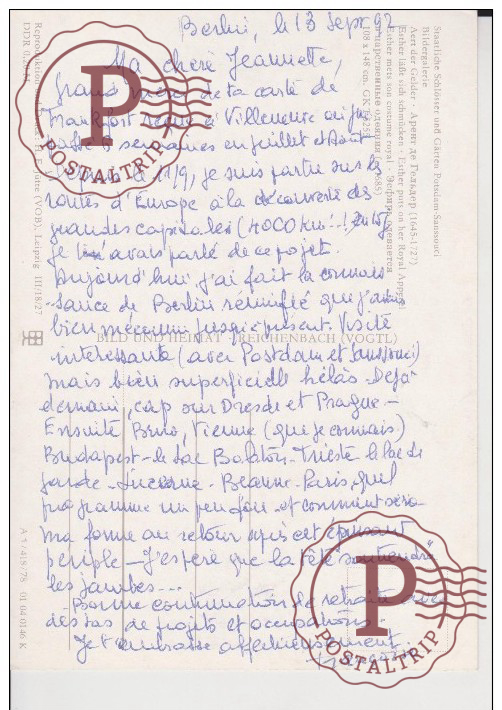 Berlin, le 13 Sept 92
Ma chère Jeannette,
grand merci de ta carte de
Frankfort reçue à Villeneuve où j'ai
passé semaines en juillet et Août
11/9, je suis partie sur les
routes d'Europe à la découverte des
grandes capitales (4000 km ! .
je t'avais parlé de ce projet.
Aujourd'hui j'ai fait la connais
sance de Berlin réunifié que j'
bien méconnu jusqu'à présent. Visite
intéressante (avec Postdam et Sanssouci)
mais bien superficielle hélas. Déjà
demain, cap sur Dresde et Prague -
Ensuite Brno, Vienne (que je connais)
Budapest - le Lac Balaton - Trieste le lac de
garde - Lucerne - Beaune - Paris, quel
programme un peu fou et comment sera
ma forme au retour après cet épuisant
périple - J'espère que la tête soutiendra
les jambes...
Bonne continuation de retraite avec
des tas de projets et occupations.
Je t'embrasse affectueusement
Staatliche Schlösser und Gärten Potsdam-Sanssouci
Bildergalerie
Aert de Gelder - Арент де Гельдер (1645-1727)
Esther läßt sich schmücken - Esther puts on her Royal Apparel
Esther mets son costume royal - Эсфирь одевается
BILD UND HEIMAT REICHENBACH (VOGTL)
(VOB), Leipzig III/18/27
A 1/418/78 01 04 0146 K
P
POSTALTRIP
P
POSTALTRIP